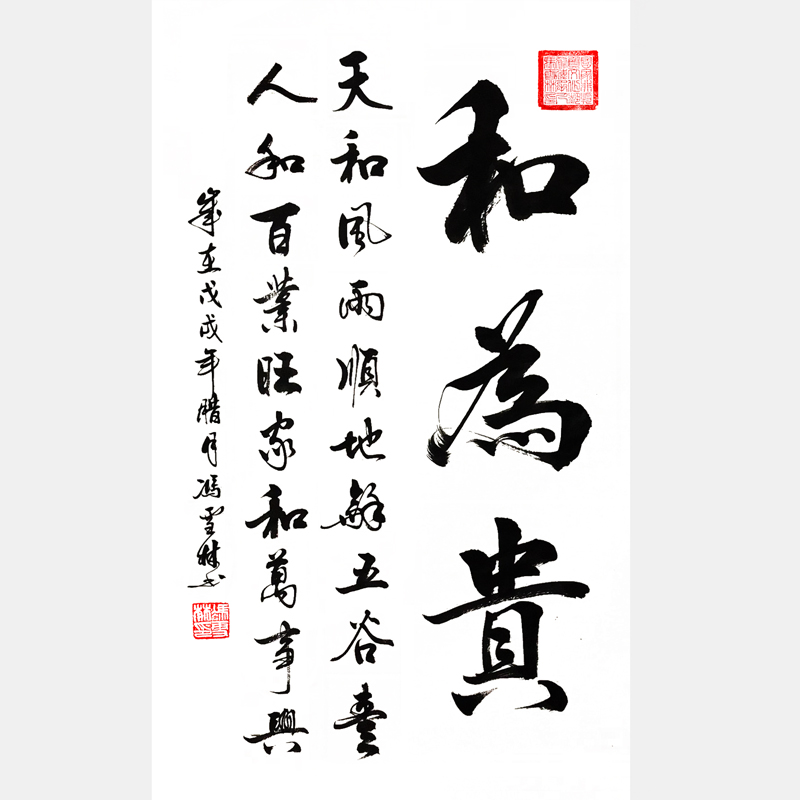 和為貴
天和風雨順地龢五谷豐
人和百業旺家和萬事興
歲在戊戌年腊月馮雪林书